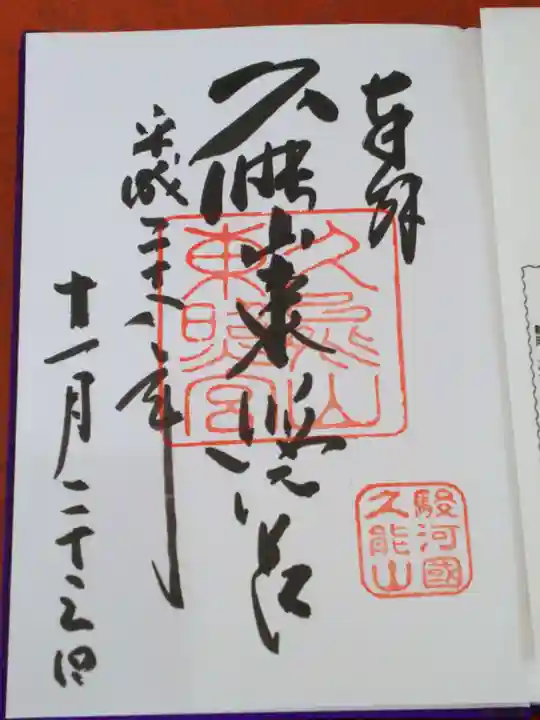 奉拝
久能山東照宮
平成二十八年
十一月二十三日
久能山
東照宮
駿河國
久能山